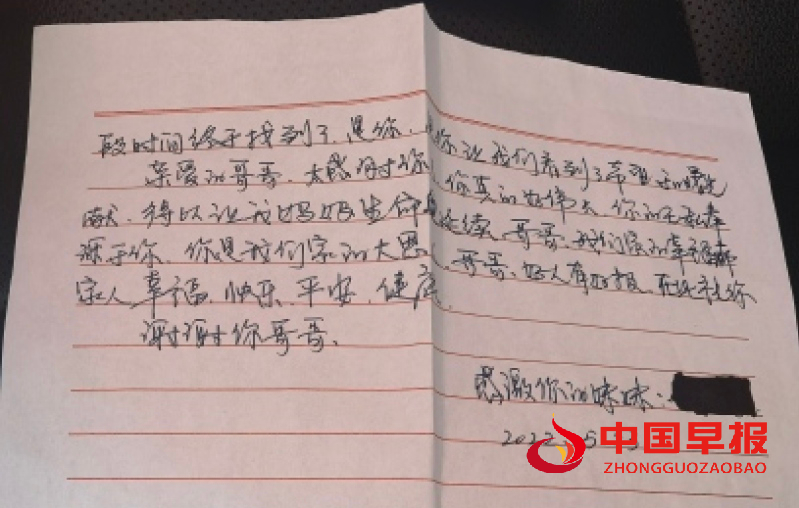 段时间终于找到了,是你,是你让我们看到了希望的曙光
亲爱的哥哥,太感谢你,你真的好伟大,你的无私奉
献,得以让我妈妈生命延续,哥哥,我们家的幸福都
源于你,你是我们家的大恩人,哥哥,好人有好报,在此祝你
家人幸福,快乐,平安,健康,
谢谢你哥哥、
感激你的妹妹:
2022.5
中国早报
ZHONGGUOZAOBAO